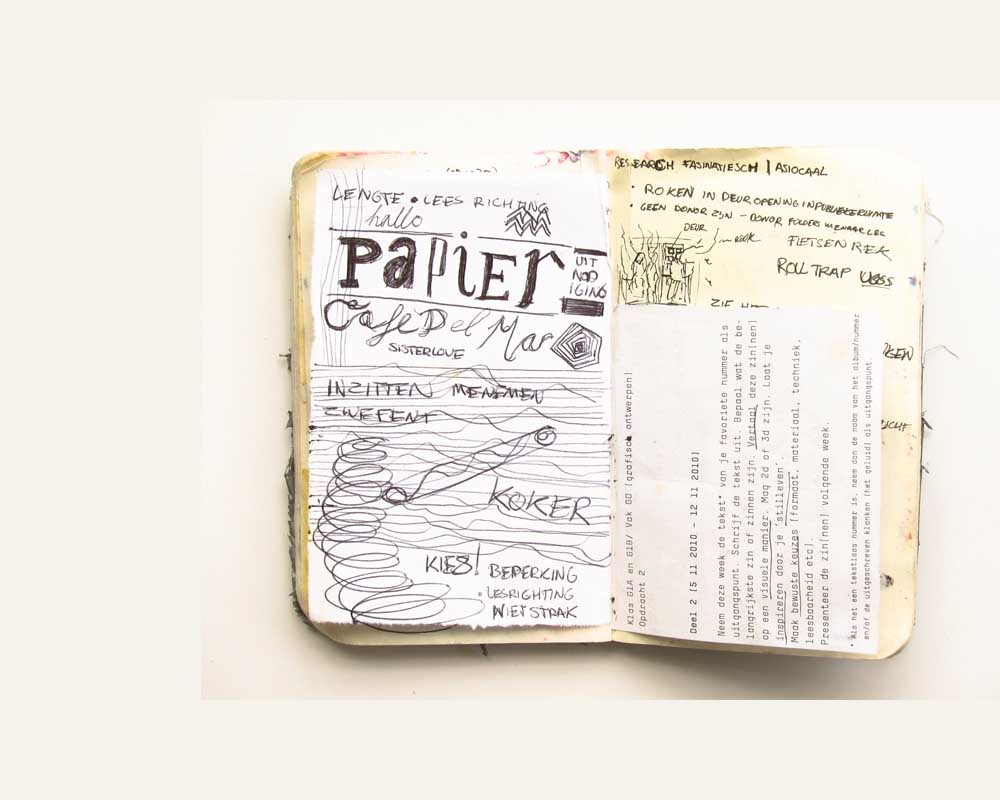 LENGTE • LEES RICHTING
hallo
PaPIEr
UIT
NOD
IGING
Cafe Del Mar
SISTERLOVE
INZITTEN MENEMEN
ZWEFENT
KOKER
KIES!
BEPERKING
• LESRIGHTING
NIET STRAK
RESEARCH FASINATIESCH | ASIOCAAL
• ROKEN IN DEUROPENING IN PUBLIEKE RUIMTE
• GEEN DONOR ZIJN - DONOR FOLDERS
DEUR
ROOK
FIETSEN REK
ROLL TRAP
ZIE
Klas G1A en G1B/ Vak GO [grafisch ontwerpen]
Opdracht 2
Deel 2 [5 11 2010 - 12 11 2010]
Neem deze week de tekst* van je favoriete nummer als
uitgangspunt. Schrijf de tekst uit. Bepaal wat de be-
langrijkste zin of zinnen zijn. Vertaal deze zin[nen]
op een visuele manier. Mag 2d of 3d zijn. Laat je
inspireren door je 'stilleven'.
Maak bewuste keuzes [formaat, materiaal, techniek,
leesbaarheid etc].
Presenteer de zin[nen] volgende week.
*Als het een tekstloos nummer is, neem dan de naam van het album/nummer
en/of de uitgeschreven klanken (het geluid) als uitgangspunt.